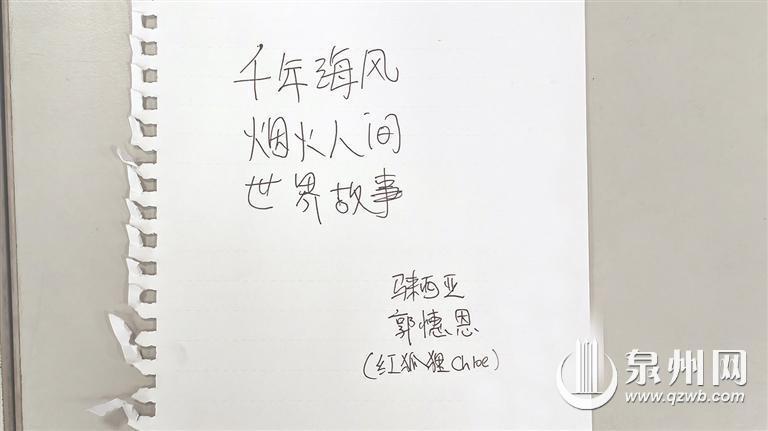 千年海风
烟火人间
世界故事
马来西亚
郭憓恩
(红狐狸Chloe)
泉州网
www.qzwb.com